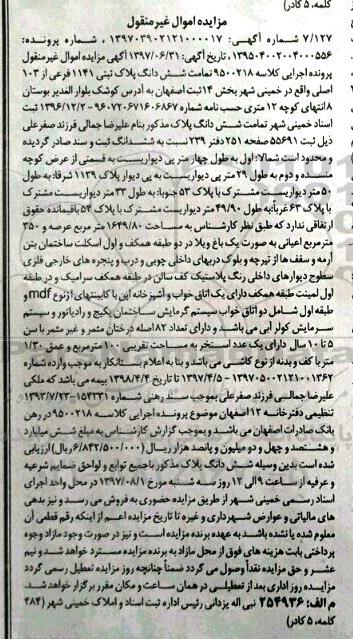 کلمه، ۵ کادر)
مزایده اموال غیرمنقول
۷/۱۲۷ شماره آگهی: ۱۳۹۷۰۳۹۰۲۱۲۱۰۰۰۰۱۷ ، شماره پرونده:
۱۳۹۵۰۴۰۰۲۰۰۴۰۰۰۵۵۶ ، تاریخ آگهی: ۱۳۹۷/۰۶/۳۱ آگهی مزایده اموال غیرمنقول
پرونده اجرایی کلاسه ۹۵۰۰۲۱۸ تمامت شش دانگ پلاک ثبتی ۱۱۴۱ فرعی از ۱۰۳
اصلی واقع در خمینی شهر بخش ۱۴ ثبت اصفهان به آدرس کوشک بلوار الغدیر بوستان
۸ انتهای کوچه ۱۲ متری حسب نامه شماره ۹۶۰۷۲۰۶۷۱۶۰۶۸۶۷ - ۱۳۹۶/۱۲/۲ ثبت
اسناد خمینی شهر تمامت شش دانگ پلاک مذکور بنام علیرضا جمالی فرزند صفرعلی
ذیل ثبت ۵۵۶۹۱ صفحه ۲۵۱ دفتر ۲۳۹ نسبت به ششدانگ ثبت و سند صادر گردیده
و محدود است شمالا: اول به طول چهار متر پی دیواریست به قسمتی از عرض کوچه
منسده و دوم به طول ۲۹ متر پی دیواریست به پی دیوار پلاک ۱۱۳۹ شرقا: به طول
۵۰ متر دیواریست مشترک با پلاک ۵۳ جنوبا: به طول ۳۳ متر دیواریست مشترک
با پلاک ۶۳ غربا: به طول ۴۹/۹۰ متر دیواریست مشترک با پلاک ۵۴ باقیمانده حقوق
ارتفاقی ندارد که طبق نظر کارشناس به مساحت ۱۶۴۹/۸۰ متر مربع عرصه و ۳۵۰
مترمربع اعیانی به صورت یک باغ ویلا در دو طبقه همکف و اول اسکلت ساختمان بتن
آرمه و سقف ها از تیرچه و بلوک دربهای داخلی چوبی و درب و پنجره های خارجی فلزی
سطوح دیوارهای داخلی رنگ پلاستیک کف سالن در طبقه همکف سرامیک و در طبقه
اول لمینت طبقه همکف دارای یک اتاق خواب و آشپزخانه اپن با کابینتهای از نوع mdf و
طبقه اول شامل دو اتاق خواب سیستم گرمایش ساختمان پکیج و رادیاتور و سیستم
سرمایش کولر آبی می باشد و دارای تعداد ۸۲ اصله درختان مثمر و غیر مثمر با سن
۵ تا ۱۰ سال دارای یک عدد استخر به مساحت تقریبی ۱۰۰ مترمربع و عمق ۱/۳۰
متر با کف و بدنه از نوع کاشی می باشد و بنا به اعلام بستانکار به موجب وارده شماره
۱۳۹۷۰۵۰۰۲۱۲۱۰۰۱۳۶۲ - ۱۳۹۷/۴/۵ تا تاریخ ۱۳۹۸/۴/۴ بیمه می باشد که ملکی
علیرضا جمالی فرزند صفرعلی بموجب سند رهنی شماره ۱۵۴۳۳۱-۱۳۹۳/۷/۲۳
تنظیمی دفترخانه ۱۲ اصفهان موضوع پرونده اجرایی کلاسه ۹۵۰۰۲۱۸ در رهن
بانک صادرات اصفهان می باشد و بموجب گزارش کارشناس به مبلغ شش میلیارد
و هشتصد و چهل و دو میلیون و پانصد هزار ریال (۶/۸۴۲/۵۰۰/۰۰۰ ریال) ارزیابی
شده است بدین وسیله شش دانگ پلاک مذکور با جمیع توابع و لواحق ضمایم شرعیه
و عرفیه از ساعت ۹ الی ۱۲ روز سه شنبه مورخ ۱۳۹۷/۰۸/۰۱ در محل واحد اجرای
اسناد رسمی خمینی شهر از طریق مزایده حضوری به فروش می رسد و نیز بدهی
های مالیاتی و عوارض شهرداری و غیره تا تاریخ مزایده اعم از اینکه رقم قطعی آن
معلوم شده یا نشده باشد به عهده برنده مزایده است و نیز در صورت وجود مازاد وجوه
پرداختی بابت هزینه های فوق از محل مازاد به برنده مزایده مسترد خواهد شد و نیم
عشر و حق مزایده نقداً وصول می گردد ضمناً چنانچه روز مزایده تعطیل رسمی گردد
مزایده روز اداری بعد از تعطیلی در همان ساعت و مکان مقرر برگزار خواهد شد.
م الف: ۲۵۴۹۳۶ نبی اله یزدانی رئیس اداره ثبت اسناد و املاک خمینی شهر (۴۸۴
کلمه، ۵ کادر)